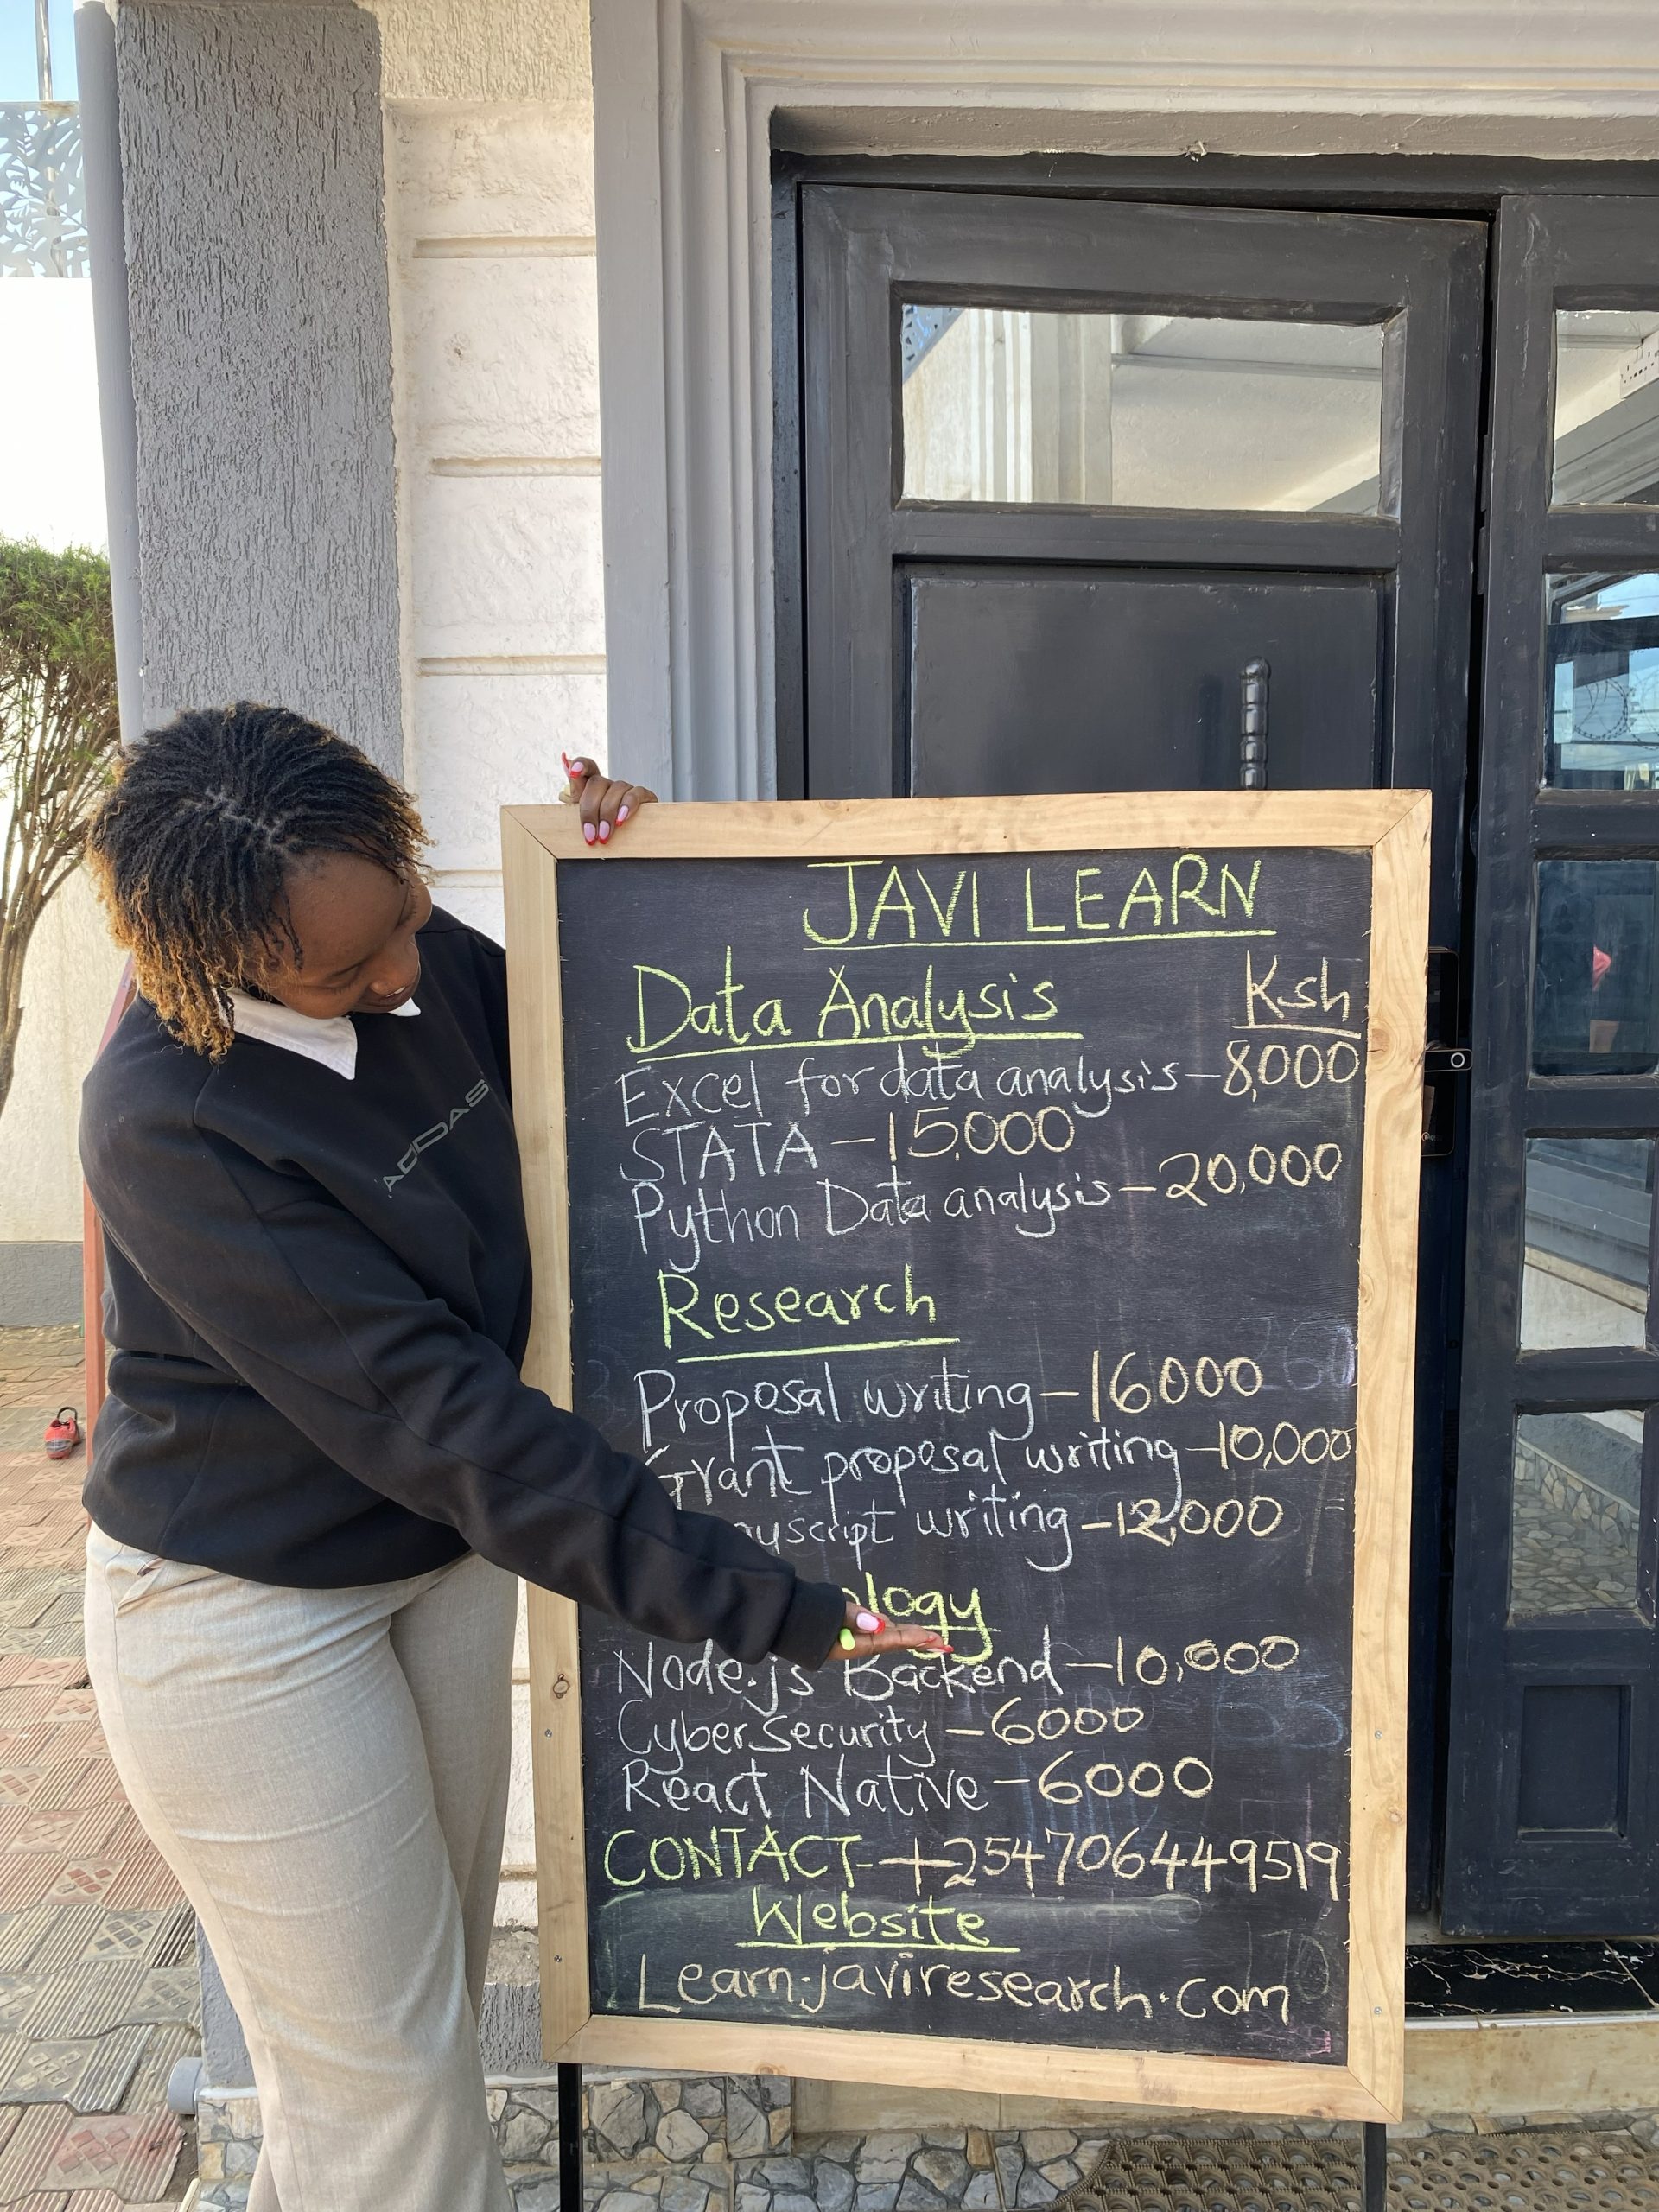 JAVI LEARN
Data Analysis Ksh
Excel for data analysis - 8,000
STATA - 15,000
Python Data analysis - 20,000
Research
Proposal writing - 16000
Grant proposal writing - 10,000
writing - 12,000
Node.js Backend - 10,000
Cybersecurity - 6000
React Native - 6000
CONTACT - +254706449519
Website
Learn.javiresearch.com
ADIDAS